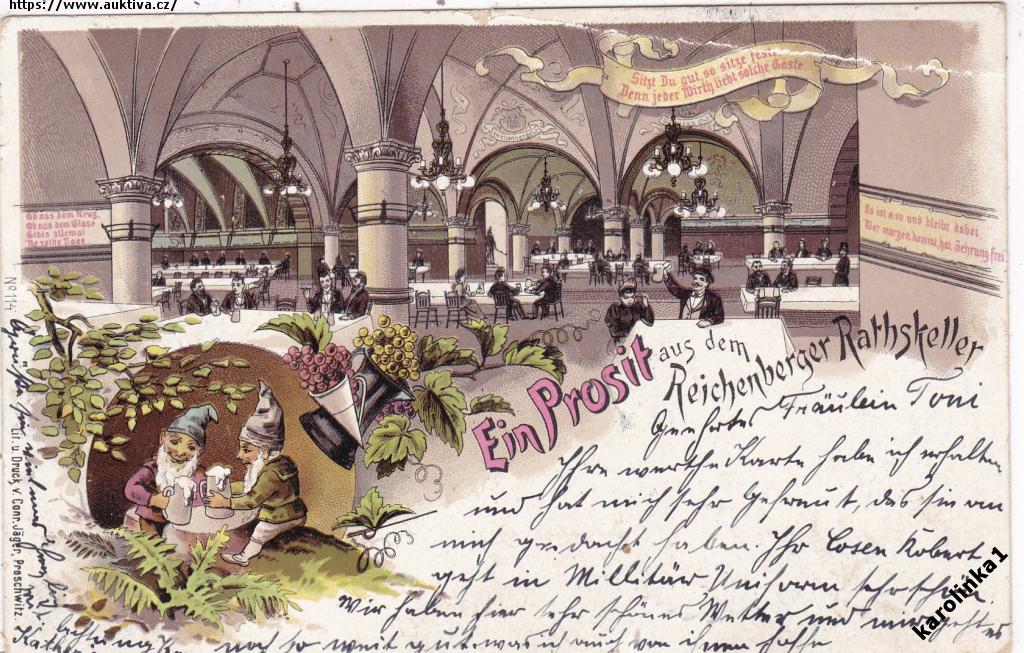 https://www.auktiva.cz/
Sitzt Du gut, so sitze feste
Denn jeder Wirth liebt solche Gäste
Reichenberg
Ob aus dem Krug,
Ob aus dem Glase
Gibts allemal
Ne rothe Nase
Es ist a so und bleibt dabei,
Wer morgen kommt, hat Zehrung frei.
Ein Prosit aus dem
Reichenberger Rathskeller
No 114
Lit. u. Druck v. Conr. Jäger, Proschwitz.
Geehrtes Fräulein Toni
Ihre werthe Karte habe ich erhalten
und hat mich sehr Gefreut, das sie an
mich gedacht haben. Ihr Robert
geht in Millitär Uniform sehr
Wir haben hier sehr schönes Wetter und mir geht es
noch so weit gut was ich auch von ihnen hoffe
karolinka1